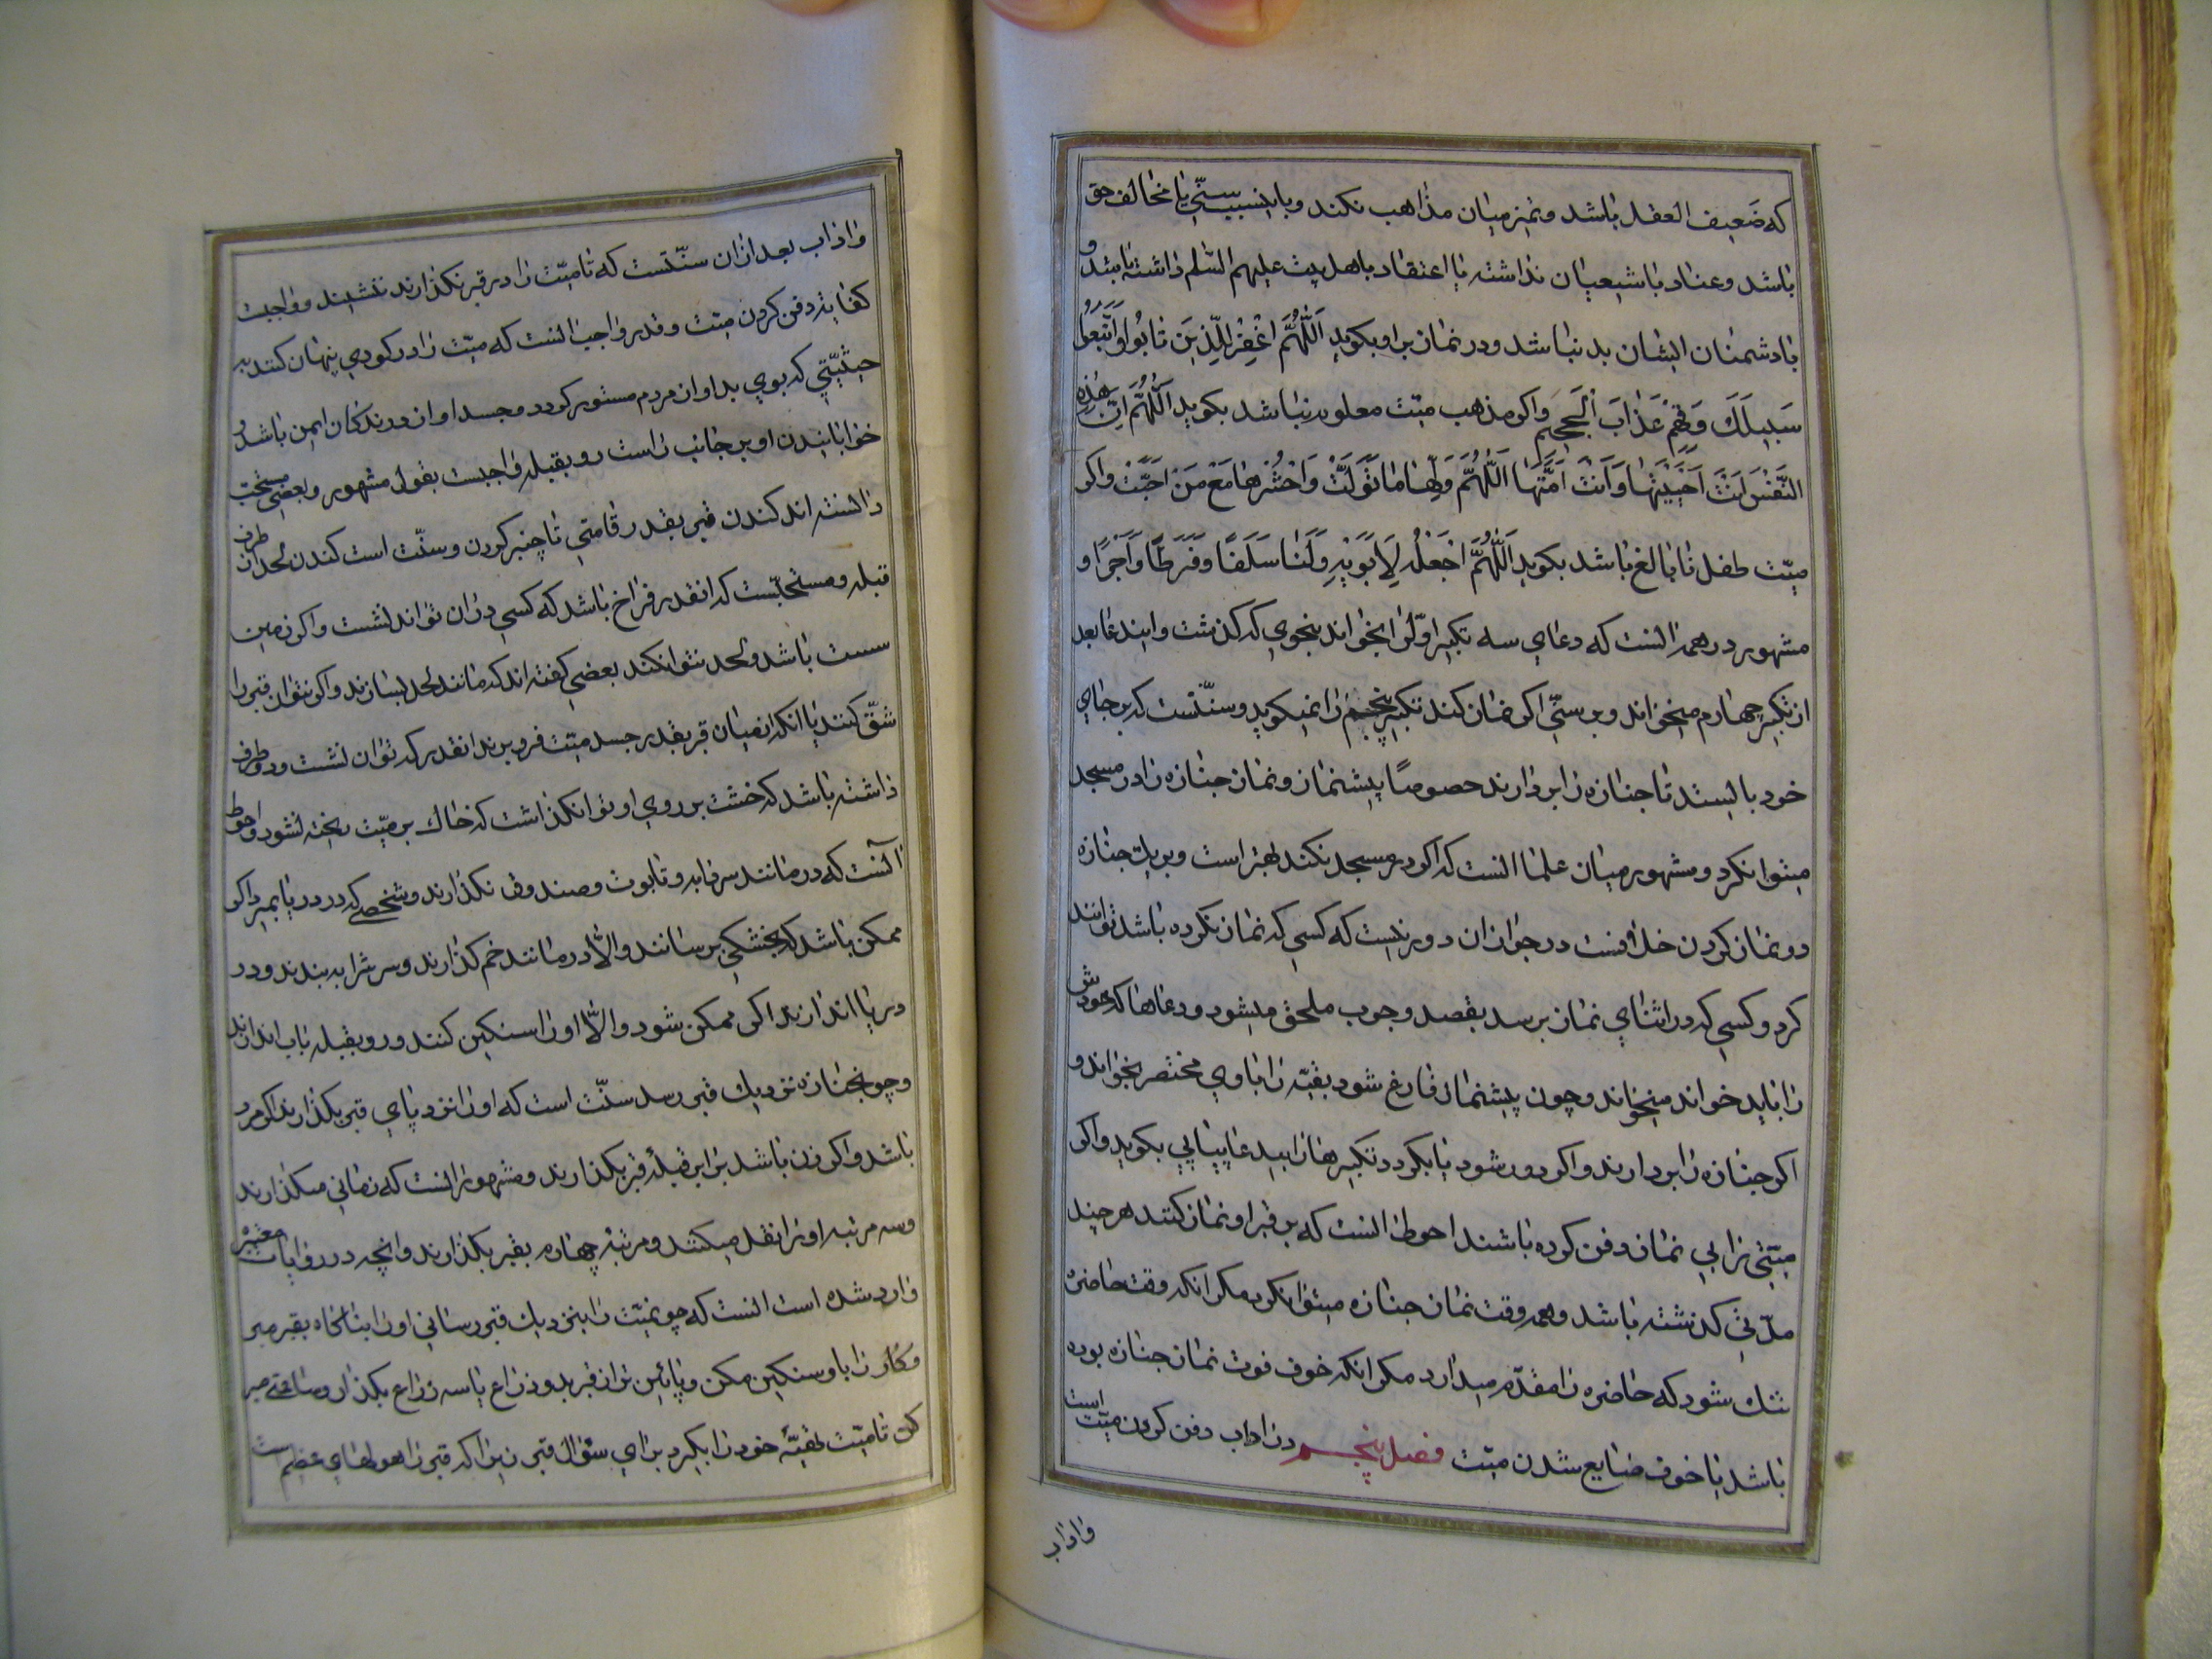 که ضعیف العقل باشد و تمیز میان مذاهب نکند و یا سنی یا مخالف حق
باشد و عناد با شیعیان نداشته یا اعتقاد باهل بیت علیهم السلم داشته باشد و
با دشمنان ایشان بد نباشد و در نماز بر او بکوید اَللّٰهُمَّ اغْفِرْ لِلَّذِینَ تٰابُوا وَاتَّبَعُوا
سَبِیلَكَ وَقِهِمْ عَذٰابَ الْجَحِیمِ و اکر مذهب میّت معلوم نباشد بکوید اَللّٰهُمَّ اِنَّ هٰذِهِ
النَّفْسَ اَنْتَ اَحْیَیْتَهٰا وَاَنْتَ اَمَتَّهٰا اَللّٰهُمَّ وَلِّهٰا مٰا تَوَلَّتْ وَاحْشُرْهٰا مَعَ مَنْ اَحَبَّتْ و اکر
میّت طفل نابالغ باشد بکوید اَللّٰهُمَّ اجْعَلْهُ لِاَبَوَیْهِ وَلَنٰا سَلَفًا وَفَرَطًا وَاَجْرًا و
مشهور در همه انست که دعاي سه تکبیر اوّلرا بخواند بنحوي که کذشت و ایندعا بعد
از تکبیر چهارم میخواند و بر سنّي اکر نماز کند تکبیر پنجم را نمیکوید و سنّتست که بر جاي
خود بایستد تا جنازه را بردارند خصوصًا پیشنماز و نماز جنازه را در مسجد
میتوان کرد و مشهور میان علما انست که اکر در مسجد نکند بهتر است و بر یك جنازه
دو نماز کردن خلافست در جواز ان دور نیست که کسي که نماز نکرده باشد تواند
کرد و کسي که در اثناي نماز برسد بقصد وجوب ملحق میشود و دعاها که خودش
را باید خواند میخواند و چون پیشنماز فارغ شود بقیّه را باوي مختصر بخواند و
اکر جنازه را بردارند و اکر دور شود یا بکردد تکبیرها را بیدعا پیاپي بکوید و اکر
میّتي را بي نماز دفن کرده باشند احوط انست که بر قبر او نماز کنند هر چند
مدّتي کذشته باشد و همه وقت نماز جنازه میتوان کرد مکر انکه وقت حاضره
تنك شود که حاضره را مقدّم میدارد مکر انکه خوف فوت نماز جنازه بوده
باشد یا خوف ضایع شدن میّت فصل پنجم در اداب دفن کردن میّت است
و اداب
و اداب بعد از ان سنّتست که تا میّت را در قبر نکذارند ننشینند و واجبست
کفایة دفن کردن میّت و قدر واجب انست که میّت را در کودي پنهان کنند به
حیثیّتي که بوي بد او از مردم مستور کردد و جسد او از درندکان ایمن باشد و
خوابانیدن او بر جانب راست رو بقبله واجبست بقول مشهور و بعضي مستحب
دانسته اند کندن قبر بقدر قامتي تا چنبر کردن و سنّت است کندن لحد از طرف
قبله و مستحبّست که انقدر فراخ باشد که کسي در ان تواند نشست و اکر زمین
سست باشد و لحد نتوان کند بعضي کفته اند که مانند لحد بسازند و اکر نتوان قبر را
شقّ کنند یا انکه از میان قبر بقدر جسد میّت فرو برند انقدر که توان نشست و دو طرف
داشته باشد که خشت بر روي او توان کذاشت که خاك بر میّت ریخته نشود و احوط
آنست که در مانند سردابه و تابوت و صندوق نکذارند و شخصي که در دریا بمیرد اکر
ممکن باشد که بخشکي برسانند و الّا در مانند خم کذارند و سرش را به بندند و در
دریا اندازند اکر ممکن شود و الّا او را سنکین کنند و رو بقبله باب اندازند
و چون جنازه نزدیك قبر رسد سنّت است که او را نزد پاي قبر بکذارند اکر مرد
باشد و اکر زن باشد برابر قبلۀ قبر بکذارند و مشهور انست که زماني میکذارند
و سه مرتبه او را نقل میکنند و مرتبۀ چهارم بقبر بکذارند و انچه در روایات معتبره
وارد شده است انست که چون میّت را بنزدیك قبر رساني او را بناکاه بقبر مبر
و کار را باو سنکین مکن و پائین تر از قبر بدو ذراع یا سه ذراع بکذار و ساعتي صبر
کن تا میّت تهیّۀ خود را بکیرد براي سؤال قبر زیرا که قبر را هولهاي عظیم است